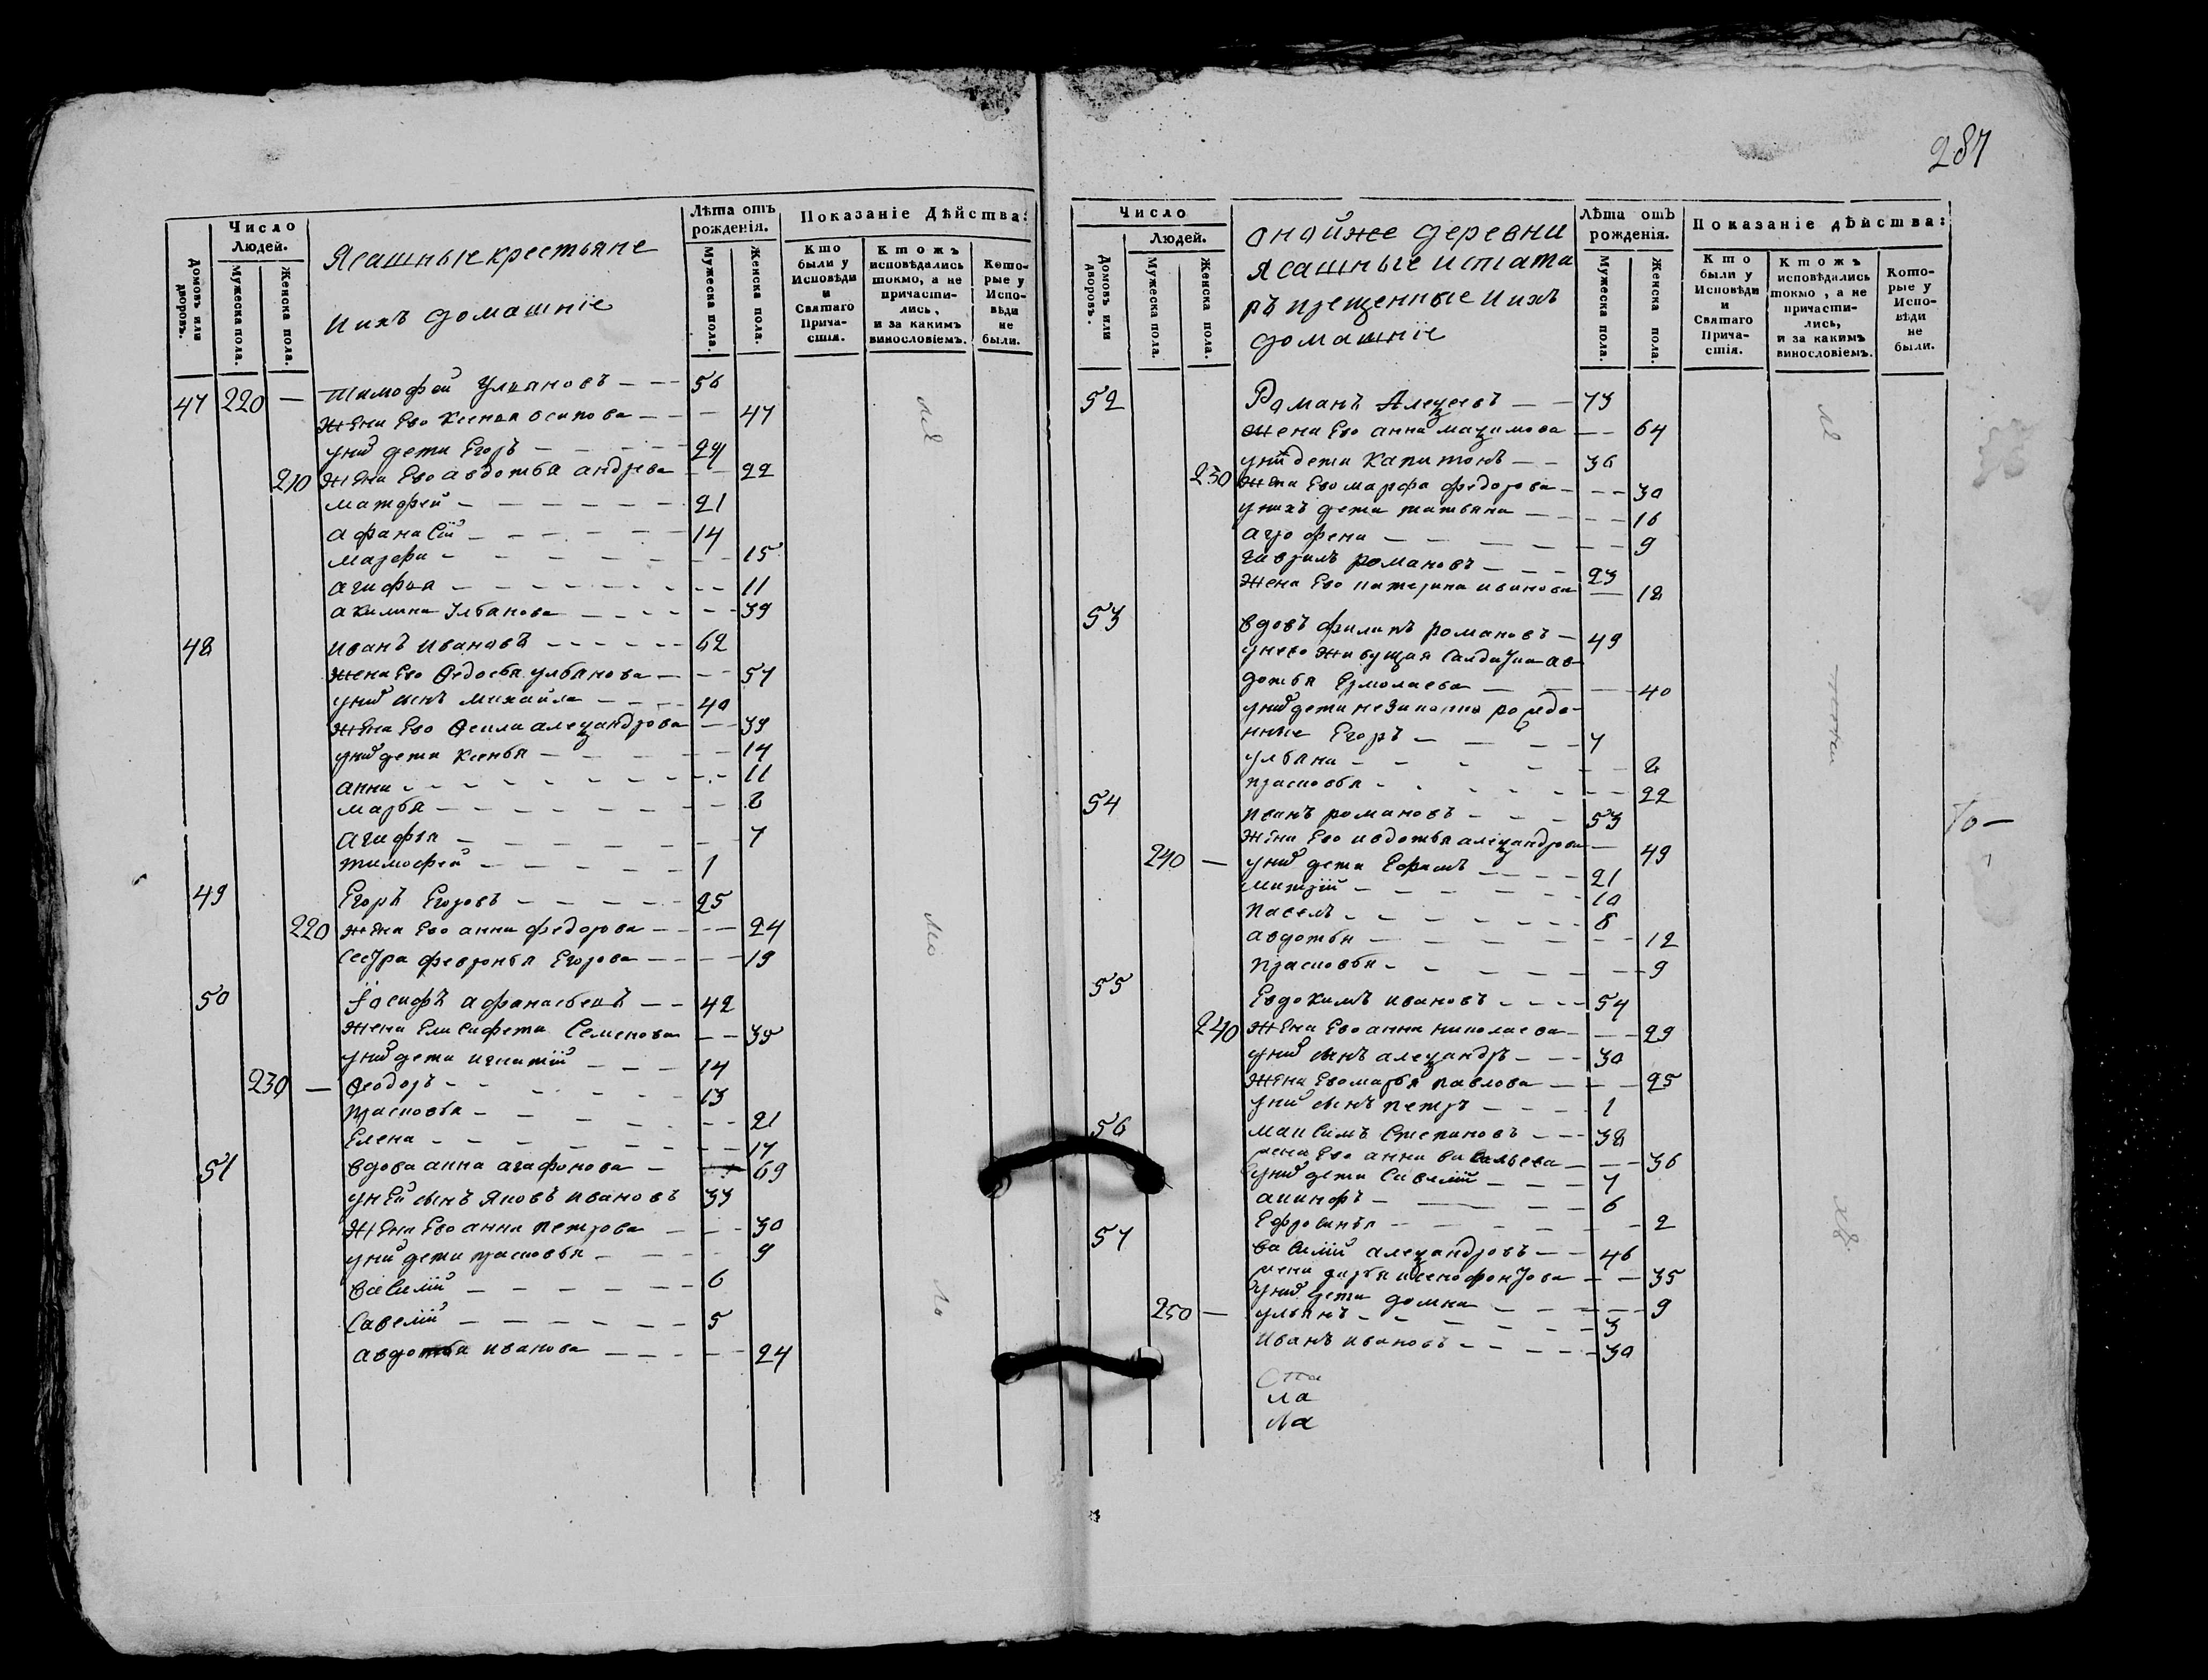 287
Число
Людей.
Домовъ или дворовъ.
Мужеска пола.
Женска пола.
Ясашные крестьяне
и ихъ домашніе
Лѣта отъ рожденія.
Мужеска пола.
Женска пола.
Показаніе Дѣйства:
Кто были у Исповѣди и Святаго Прича-стія.
Ктожъ исповѣдались токмо, а не причасти-лись, и за какимъ винословіемъ.
Кото-рые у Испо-вѣди не были.
47 220 — тимофей Ульяновъ — — 56
жена Ево Ксенья осипова — — — 47
у нихъ дети Егоръ — — — — 24
210 жена Ево авдотья андрева — — 22
матфей — — — — — — 21
афанасїй — — — — — 14
марфа — — — — — — — 15
агафья — — — — — — — — 11
акилина Ульянова — — — — — 39
48 иванъ ивановъ — — — — — — 62
жена Ево Ѳедосья ульянова — — — 57
у нихъ сынъ михайла — — — — 40
жена Ево александрова — — 39
у нихъ дети Ксенья — — — — — 14
анна — — — — — — — — — 11
марья — — — — — — — — 8
агафья — — — — — — — 7
тимофей — — — — — — 1
49 Егоръ Егоровъ — — — — — 25
220 жена Ево анна федорова — — — — 24
сестра февронья Егорова — — — — 19
50 Їосифъ афанасьевъ — — 42
жена Елисафета Семенова — — 35
у нихъ дети игнатїй — — — 14
230 — Ѳеодоръ — — — — — 13
прасковья — — — — — — 21
Елена — — — — — — — — 17
51 вдова анна агафонова — — — 69
у ней сынъ яковъ ивановъ 33
жена Ево анна петрова — — — 30
у нихъ дети прасковья — — — — 9
василїй — — — — — — 6
савелїй — — — — — — 5
авдотья иванова — — — — — — 24
Число
Людей.
Домовъ или дворовъ.
Мужеска пола.
Женска пола.
оной же деревни
ясашные и
домашніе
Лѣта отъ рожденія.
Мужеска пола.
Женска пола.
Показаніе дѣйства:
Кто были у Исповѣди и Святаго Прича-стія.
Ктожъ исповѣдались токмо, а не причасти-лись, и за какимъ винословіемъ.
Кото-рые у Испо-вѣди не были.
52 Романъ Алеѯеевъ — — 73
жена Ево анна маѯимова — — 64
у нихъ дети капитонъ — — 36
230 жена Ево марфа федорова — — — 30
у нихъ дети татьяна — — — — 16
агрофена — — — — — — — 9
гаврилъ романовъ — — — 23
жена Ево катерина иванова — 18
53 вдовъ филипъ романовъ — 49
у нево живущая салдатка ав-
дотья Ермолаева — — — — 40
у нихъ дети незаконно рожде-
нные Егоръ — — — — 7
ульяна — — — — — — 2
прасковья — — — — — — — 22
54 иванъ романовъ — — — 53
жена Ево авдотья алеѯандрова — 49
240 — у нихъ дети Ефимъ — — — — 21
— — — — — — 10
павелъ — — — — — — — 8
авдотья — — — — — — — 12
прасковья — — — — — — — 9
55 Евдокимъ ивановъ — — — — 54
240 жена Ево анна николаева — — — 29
у нихъ сынъ алеѯандръ — — — 30
жена Ево марья павлова — — — 25
у нихъ сынъ петръ — — — — 1
56 максимъ Степановъ — — — 38
жена Ево анна васильева — — — 36
у нихъ дети савелїй — — — 7
— — — — 6
Ефросинья — — — — — — — 2
57 василїй алеѯандровъ — — 46
жена дарья ксенофонтова — — — 35
у нихъ дети домна — — — — — 9
250 — ульянъ — — — — — — — 3
иванъ ивановъ — — — — — 30